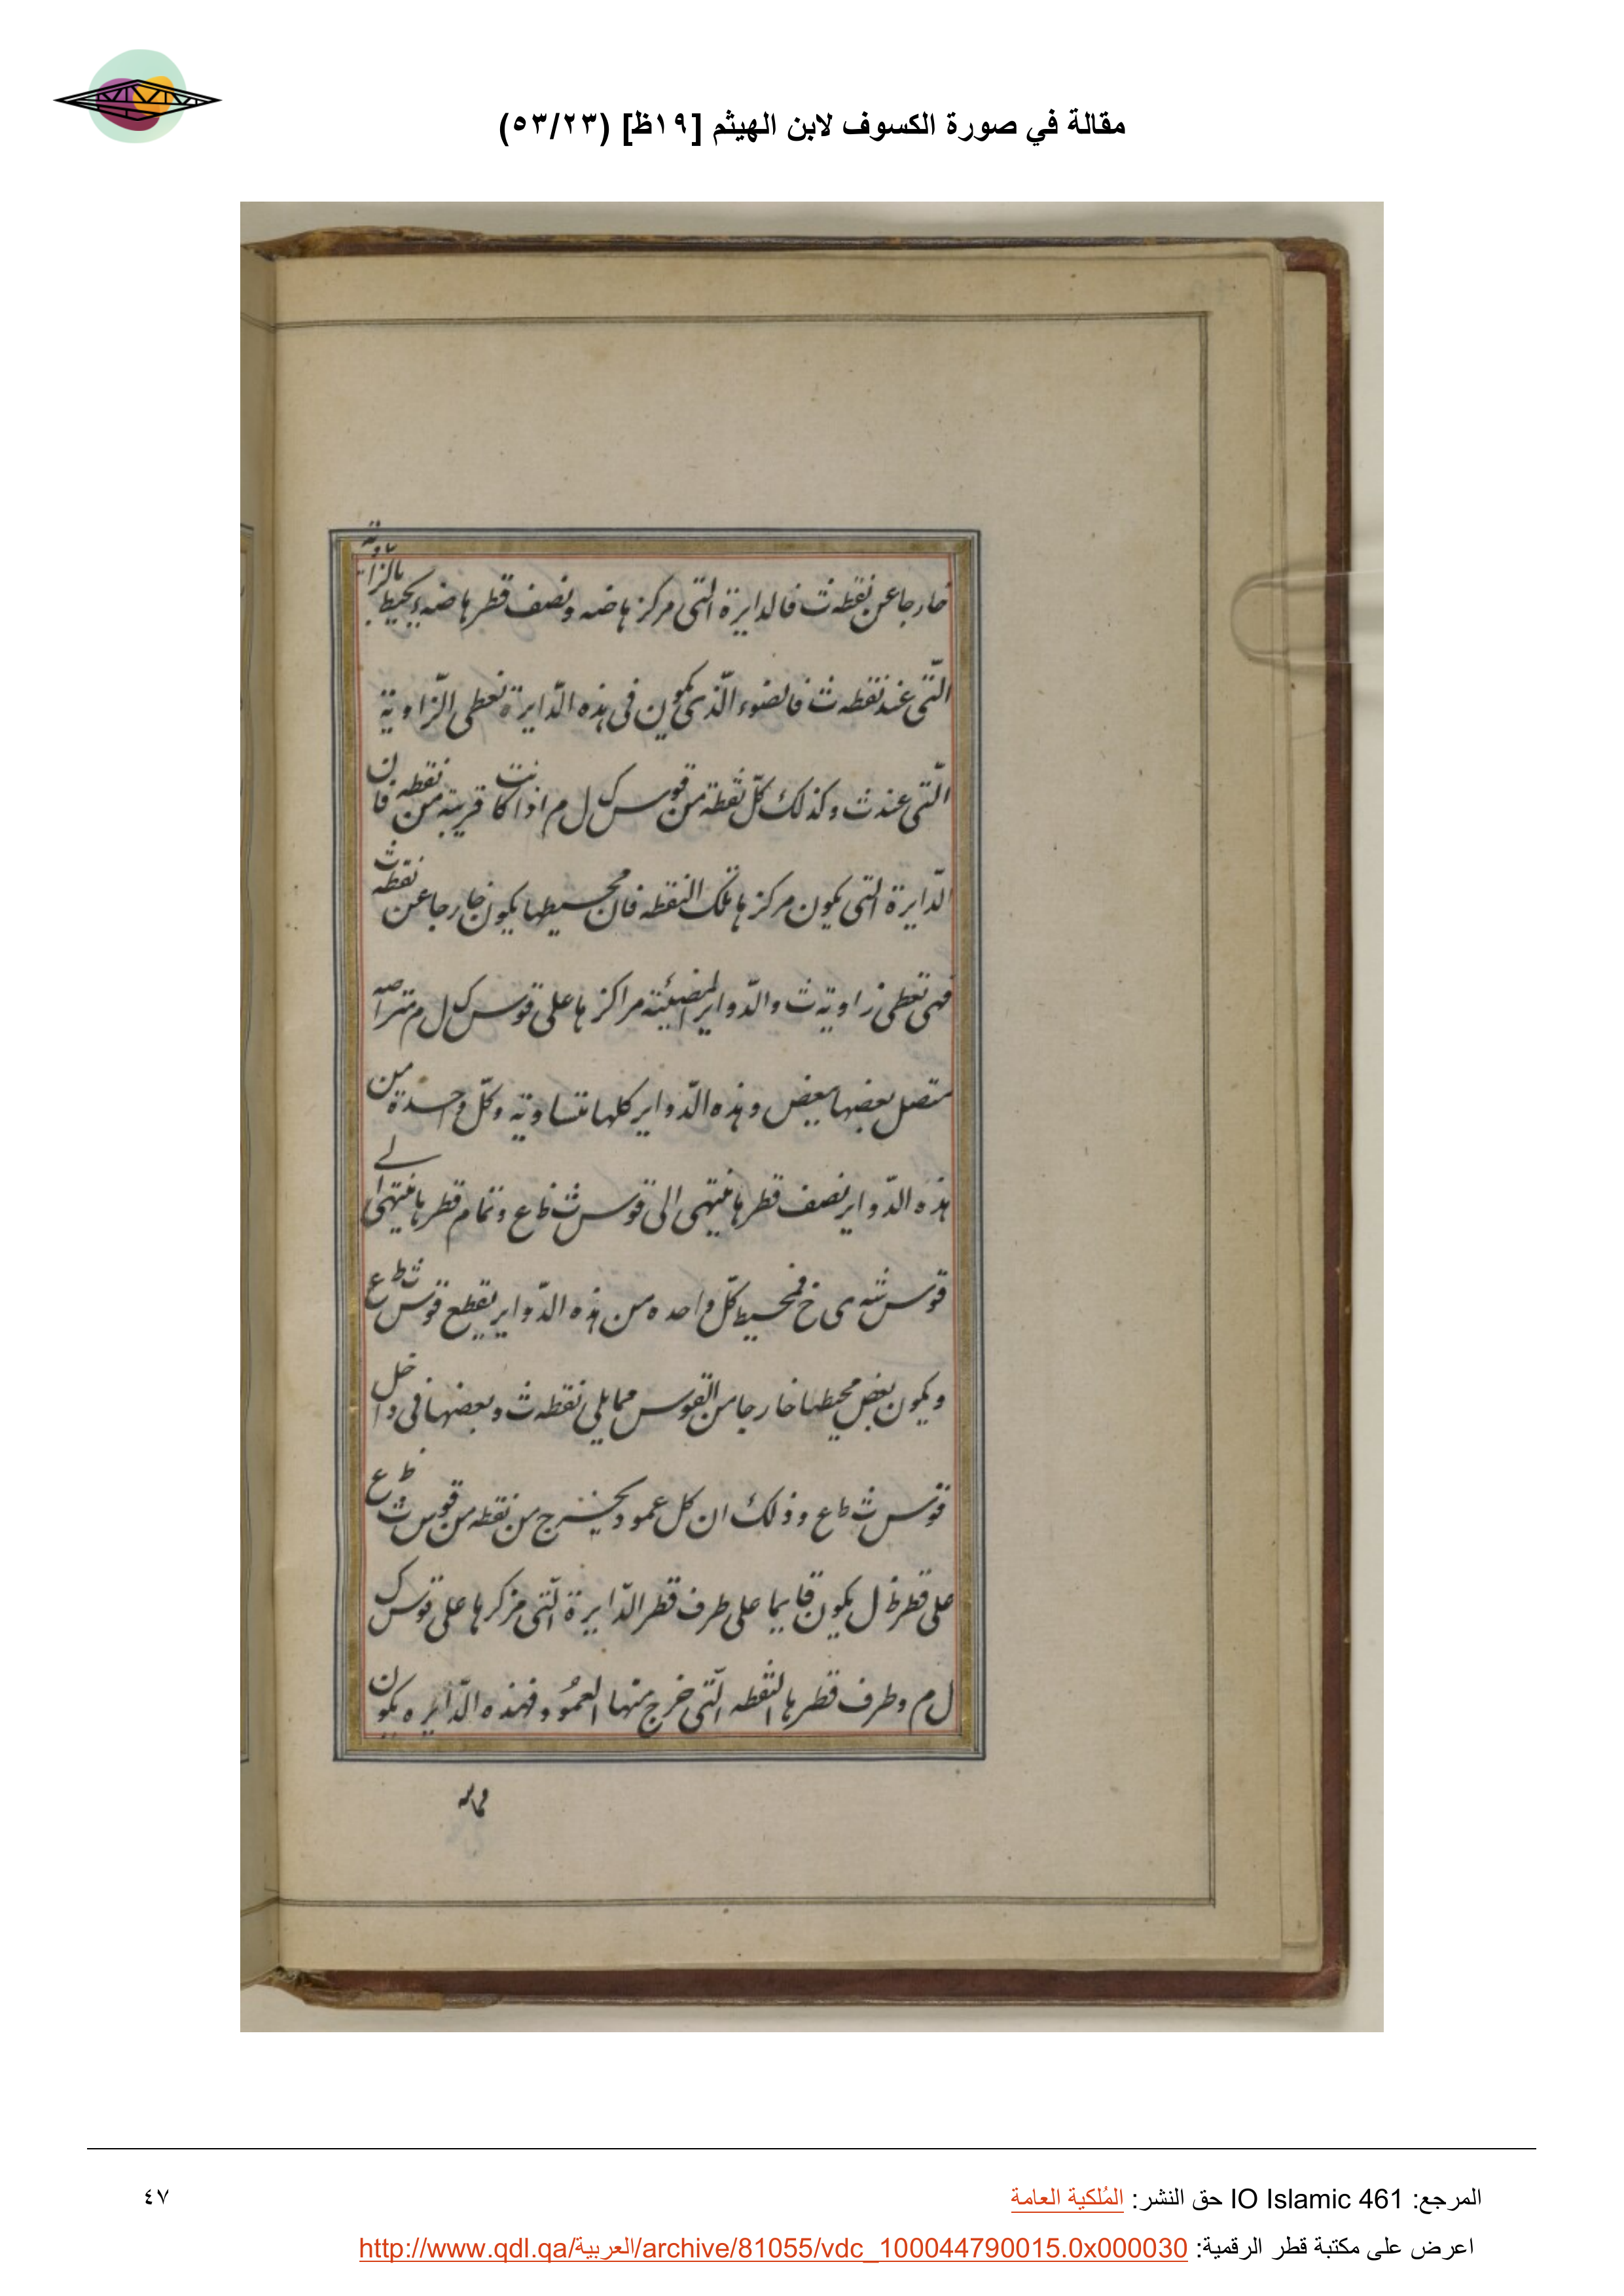 مقالة في صورة الكسوف لابن الهيثم [١٩ظ] (٥٣/٢٣)
خارجا عن نقطه ث فالدايرة التى مركزها ضه ونصف قطرها ضه يحيط بالزاوية
التّى عند نقطه ث فالضوء الّذى يكون فى هذه الدّايرة تعطى الزّاوية
التّى عند ث وكذلك كلّ نقطة من قوس ک ل م اذا كانت قريبة من نقطه فان
الدّايرة التى يكون مركزها تلك النقطه فان محيطها يكون خارجا عن نقطه ث
فهى تعطى زاوية ث والدّواير المضيئة مراكزها على قوس ک ل م متراصه
متصل بعضها ببعض وهذه الدّواير كلها متساوية وكلّ واحدة من
هذه الدّواير نصف قطرها ينتهى الى قوس ث ظ ع وتمام قطرها ينتهى الے
قوس شه ى خ فمحيط كلّ واحده من هذه الدّواير يقطع قوس ث ظ ع
ويكون بعض محيطها خارجا من القوس مما يلى نقطه ث وبعضها فى داخل
قوس ث ظ ع وذلك ان كل عمود يخرج من نقطه من قوس ث ظ ع
على قطر ظ ل يكون قايما على طرف قطر الدّايرة التّى مركزها على قوس ک
ل م وطرف قطرها النقطه التّى خرج منها العمُود فهذه الدّايره يكون
مماسه
المرجع: IO Islamic 461 حق النشر: المُلكية العامة
٤٧
اعرض على مكتبة قطر الرقمية: http://www.qdl.qa/العربية/archive/81055/vdc_100044790015.0x000030